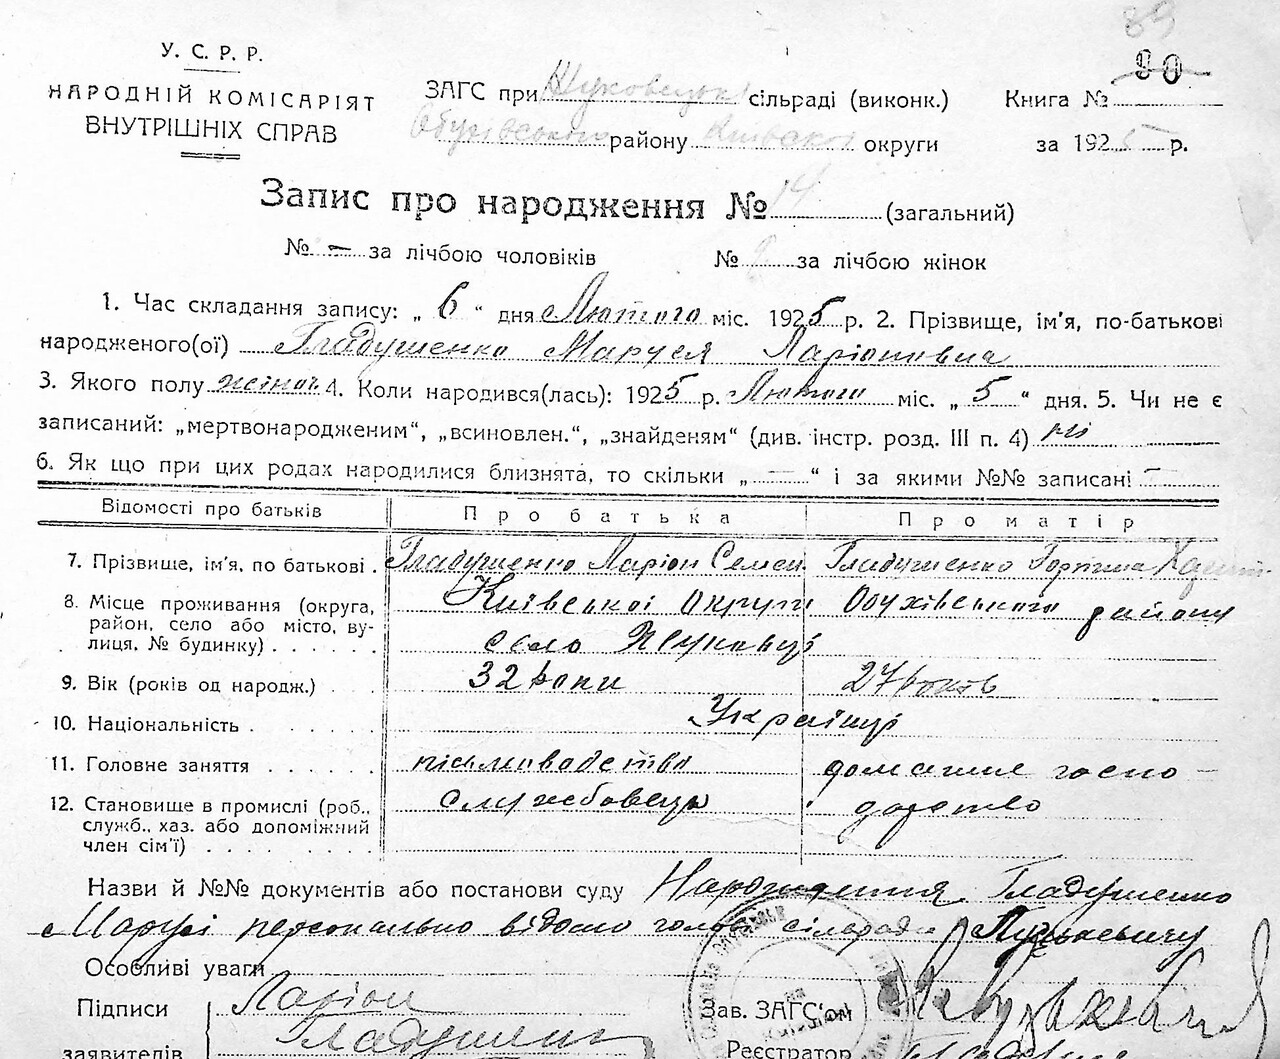 89
У. С. Р. Р.
90
НАРОДНІЙ КОМІСАРІЯТ
ВНУТРІШНІХ СПРАВ
ЗАГС при Жуковецькій сільраді (виконк.) Книга №
Обухівського району Київської округи за 1925 р.
Запис про народження № 14 (загальний)
№ – за лічбою чоловіків № за лічбою жінок
1. Час складання запису: „ 6 “ дня Лютого міс. 1925 р. 2. Прізвище, ім'я, по-батькові
народженого(ої) Гладушенко Маруся Ларіоновна
3. Якого полу жіноч. 4. Коли народився(лась): 1925 р. Лютого міс. „ 5 “ дня. 5. Чи не є
записаний: „мертвонародженим“, „всиновлен.“, „знайденям“ (див. інстр. розд. III п. 4) ні
6. Як що при цих родах народилися близнята, то скільки „ — “ і за якими №№ записані —
Відомості про батьків Про батька Про матір
7. Прізвище, ім'я, по батькові . Гладушенко Ларіон Семен. Гладушенко Горпина
8. Місце проживання (округа, район, село або місто, вулиця, № будинку) . . . . . . Київської округи Обухівського району
село Жуковці
9. Вік (років од народж.) . . . 32 роки 27 років
10. Національність . . . . . . Українці
11. Головне заняття . . . . . . письмоводство домашнє госпо-
12. Становище в промислі (роб., служб., хаз. або допоміжний член сім'ї) . . . . . . . . службовець дарство
Назви й №№ документів або постанови суду Народження Гладушенко
Марусі персонально відомо голові сільради
Особливі уваги
Підписи Ларіон Зав. ЗАГС'ом
заявителів Гладушенко Реєстратор